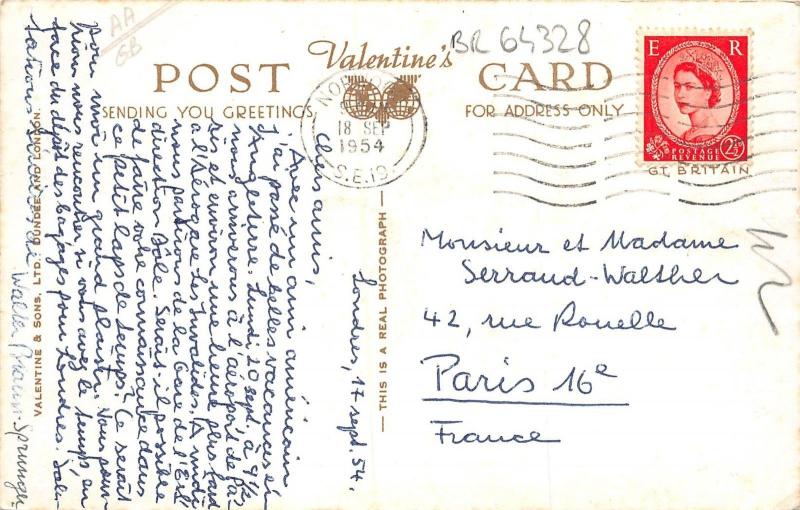 AA
GB
BR 64328
Valentine's
POST CARD
SENDING YOU GREETINGS
FOR ADDRESS ONLY
18 SEP
1954
S.E.19.
E R
POSTAGE
REVENUE
2½
GT. BRITAIN
Londres, 17 sept. 54.
Chers amis,
Avec un ami américain
j'ai passé de belles vacances en
Angleterre. Lundi 20 sept. à 9½
nous arriverons à l'aéroport de Pa-
ris et environ une heure plus tard
à l'Aérogare les Invalides. A midi
nous partirons de la Gare de l'Est
direction Bâle. Serait-il possible
de faire votre connaissance dans
ce petit laps de temps? Ce serait
pour moi un grand plaisir. Nous pour-
rions nous rencontrer, si vous avez le temps, en
face du dépôt des bagages pour Londres. Salu-
tations
Walter Braun-Sprunger
VALENTINE & SONS, LTD. DUNDEE AND LONDON.
THIS IS A REAL PHOTOGRAPH
Monsieur et Madame
Serraud-Walther
42, rue Rouelle
Paris 16e
France